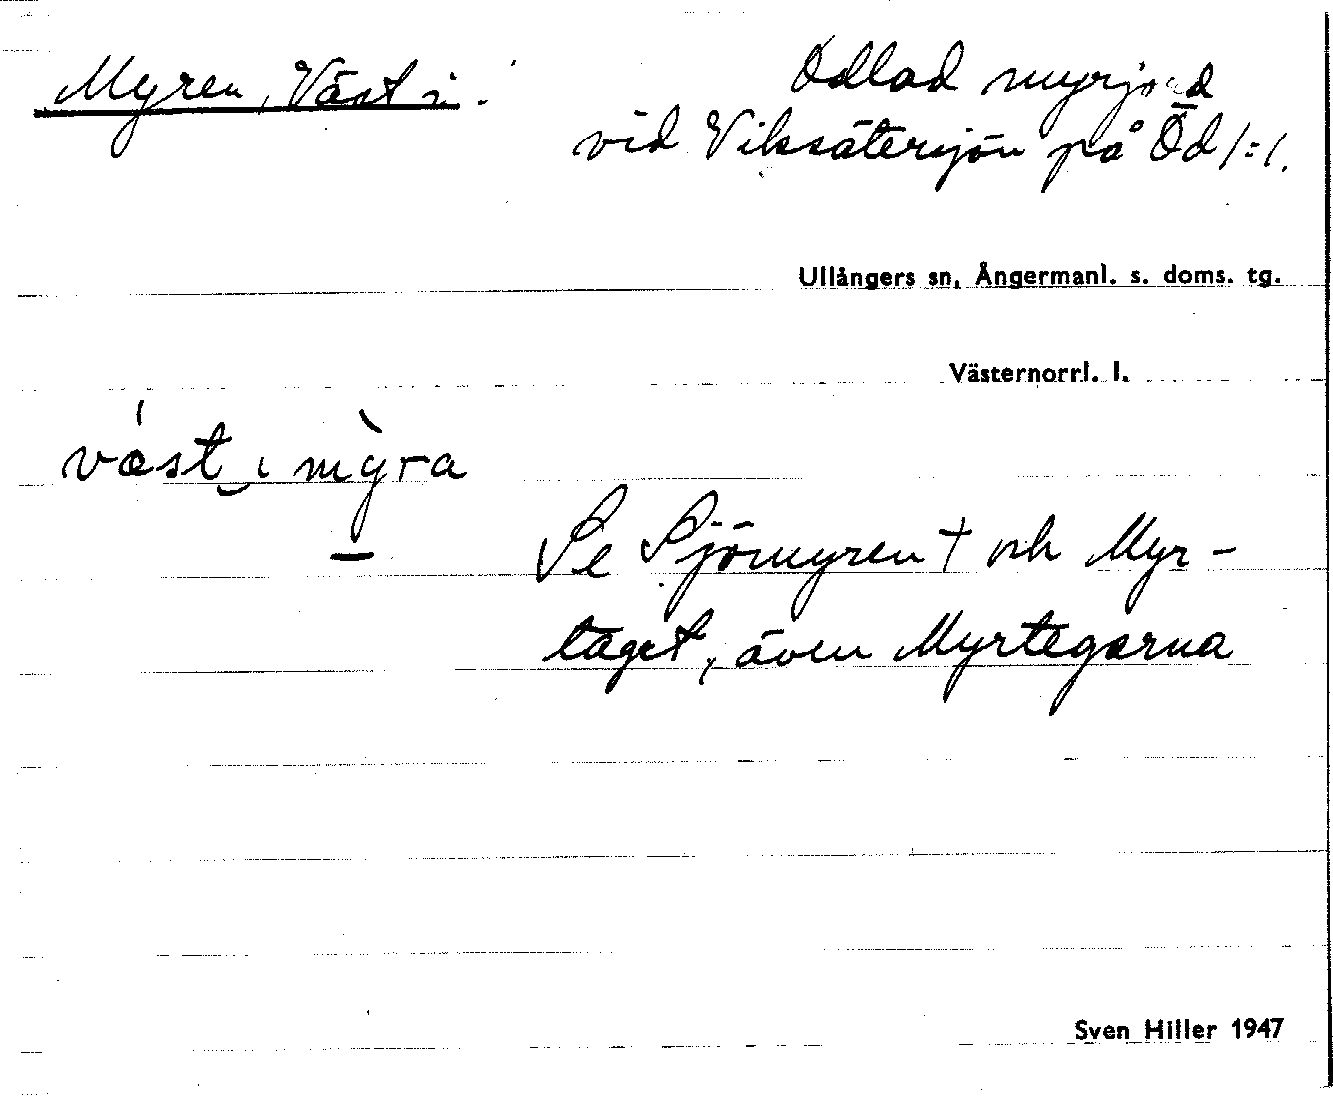 Myren, Väst i.
Odlad myrjord
vid Viksätersjön på Öd /:/.
Ullångers sn, Ångermanl. s. doms. tg.
Västernorrl. l.
vǽst‿ı mỳra
Se Sjömyren + och Myr-
taget, även Myrtegarna
Sven Hiller 1947